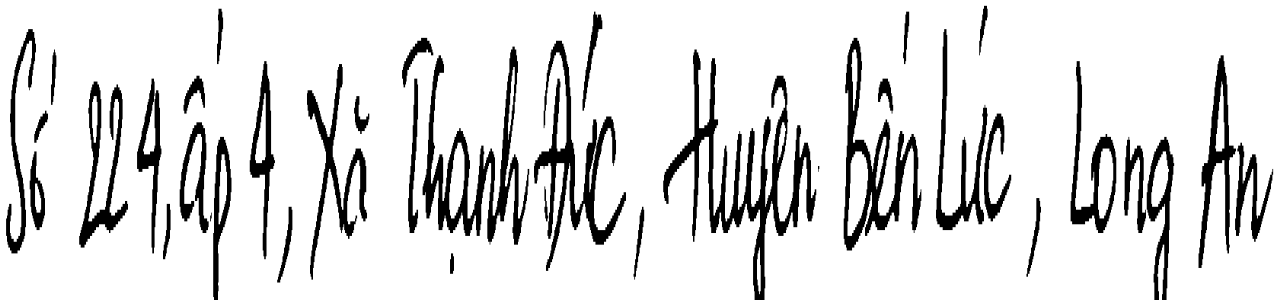 Số 224, ấp 4, Xã Thạnh Đức, Huyện Bến Lức, Long An